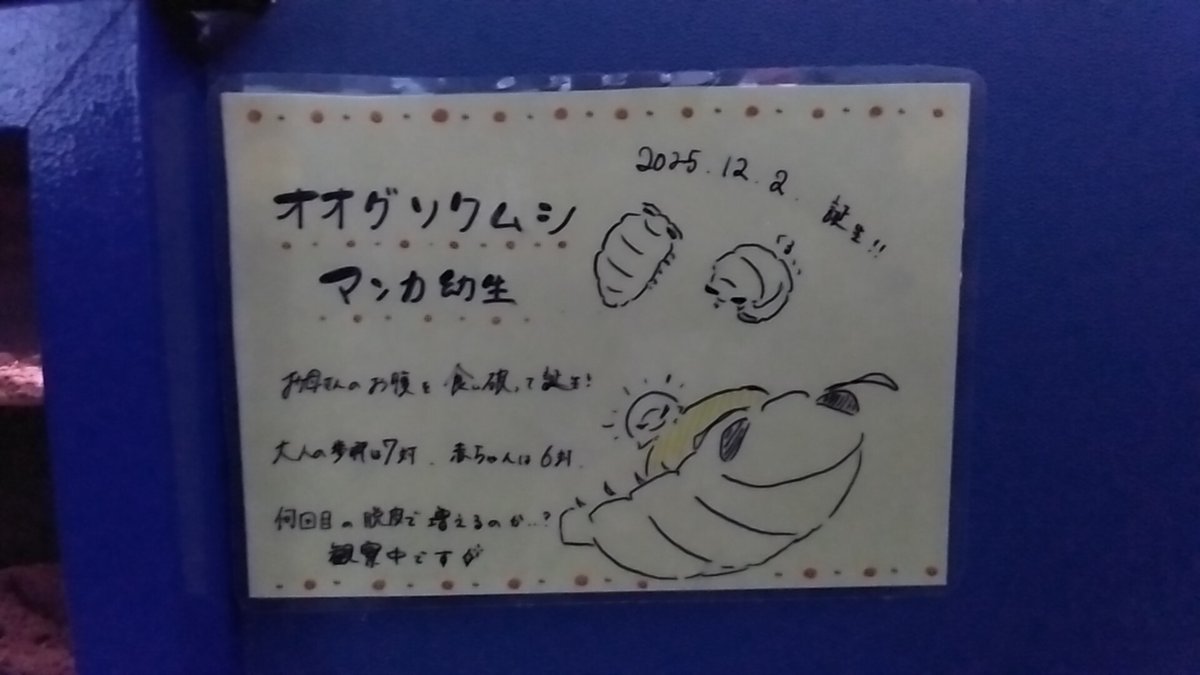 2025.12.2. 誕生!!
オオグソクムシ
マンカ幼生
くる…
お母さんのお腹を食い破って誕生!
大人の歩脚は7対、赤ちゃんは6対。
何回目の脱皮で増えるのか…?
観察中です